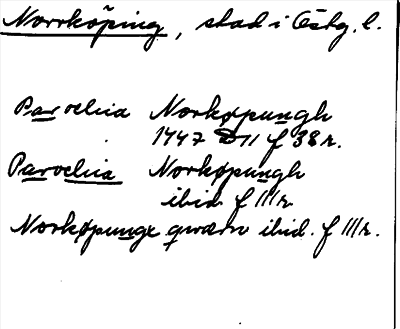 Norrköping, stad i Östg. l.
Parochia Norkøpungh
1447 D11 f 38 r.
Parochia Norkøpungh
ibid f 111 r
Norkøpunge qwærn ibid. f 111 r.